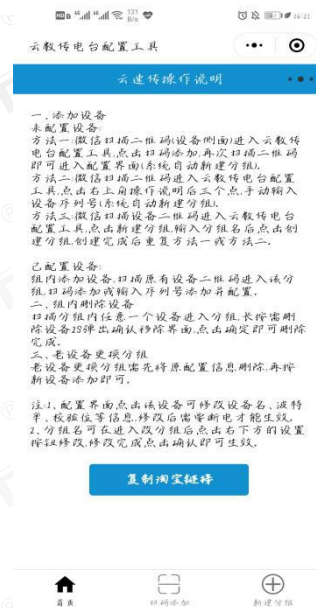 HD 46 46 121 B/s 16:21
云数传电台配置工具
云速传操作说明
一、添加设备
未配置设备:
方法一:微信扫描二维码(设备侧面)进入云数传
电台配置工具,点击扫码添加,再次扫描二维码
即可进入配置界面(系统自动新建分组).
方法二:微信扫描二维码进入云数传电台配置
工具,点击右上角操作说明后三个点,手动输入
设备序列号(系统自动新建分组).
方法三:微信扫描设备二维码进入云数传电台
配置工具,点击新建分组,输入分组名后点击创
建分组,创建完成后重复方法一或方法二.
已配置设备:
组内添加设备,扫描原有设备二维码进入该分
组,扫码添加或输入序列号添加并配置.
二、组内删除设备
扫描分组内任意一个设备进入分组,长按需删
除设备2S弹出确认移除界面,点击确定即可删除
完成.
三、老设备更换分组
老设备更换分组需先将原配置信息删除,再按
新设备添加即可.
注:1、配置界面,点击该设备可修改设备名、波特
率、校验位等信息,修改后需要断电才能生效.
2、分组名可在进入改分组后,点击右下方的设置
按钮修改,修改完成,点击确认即可生效.
复制淘宝链接
首页
扫码添加
新建分组